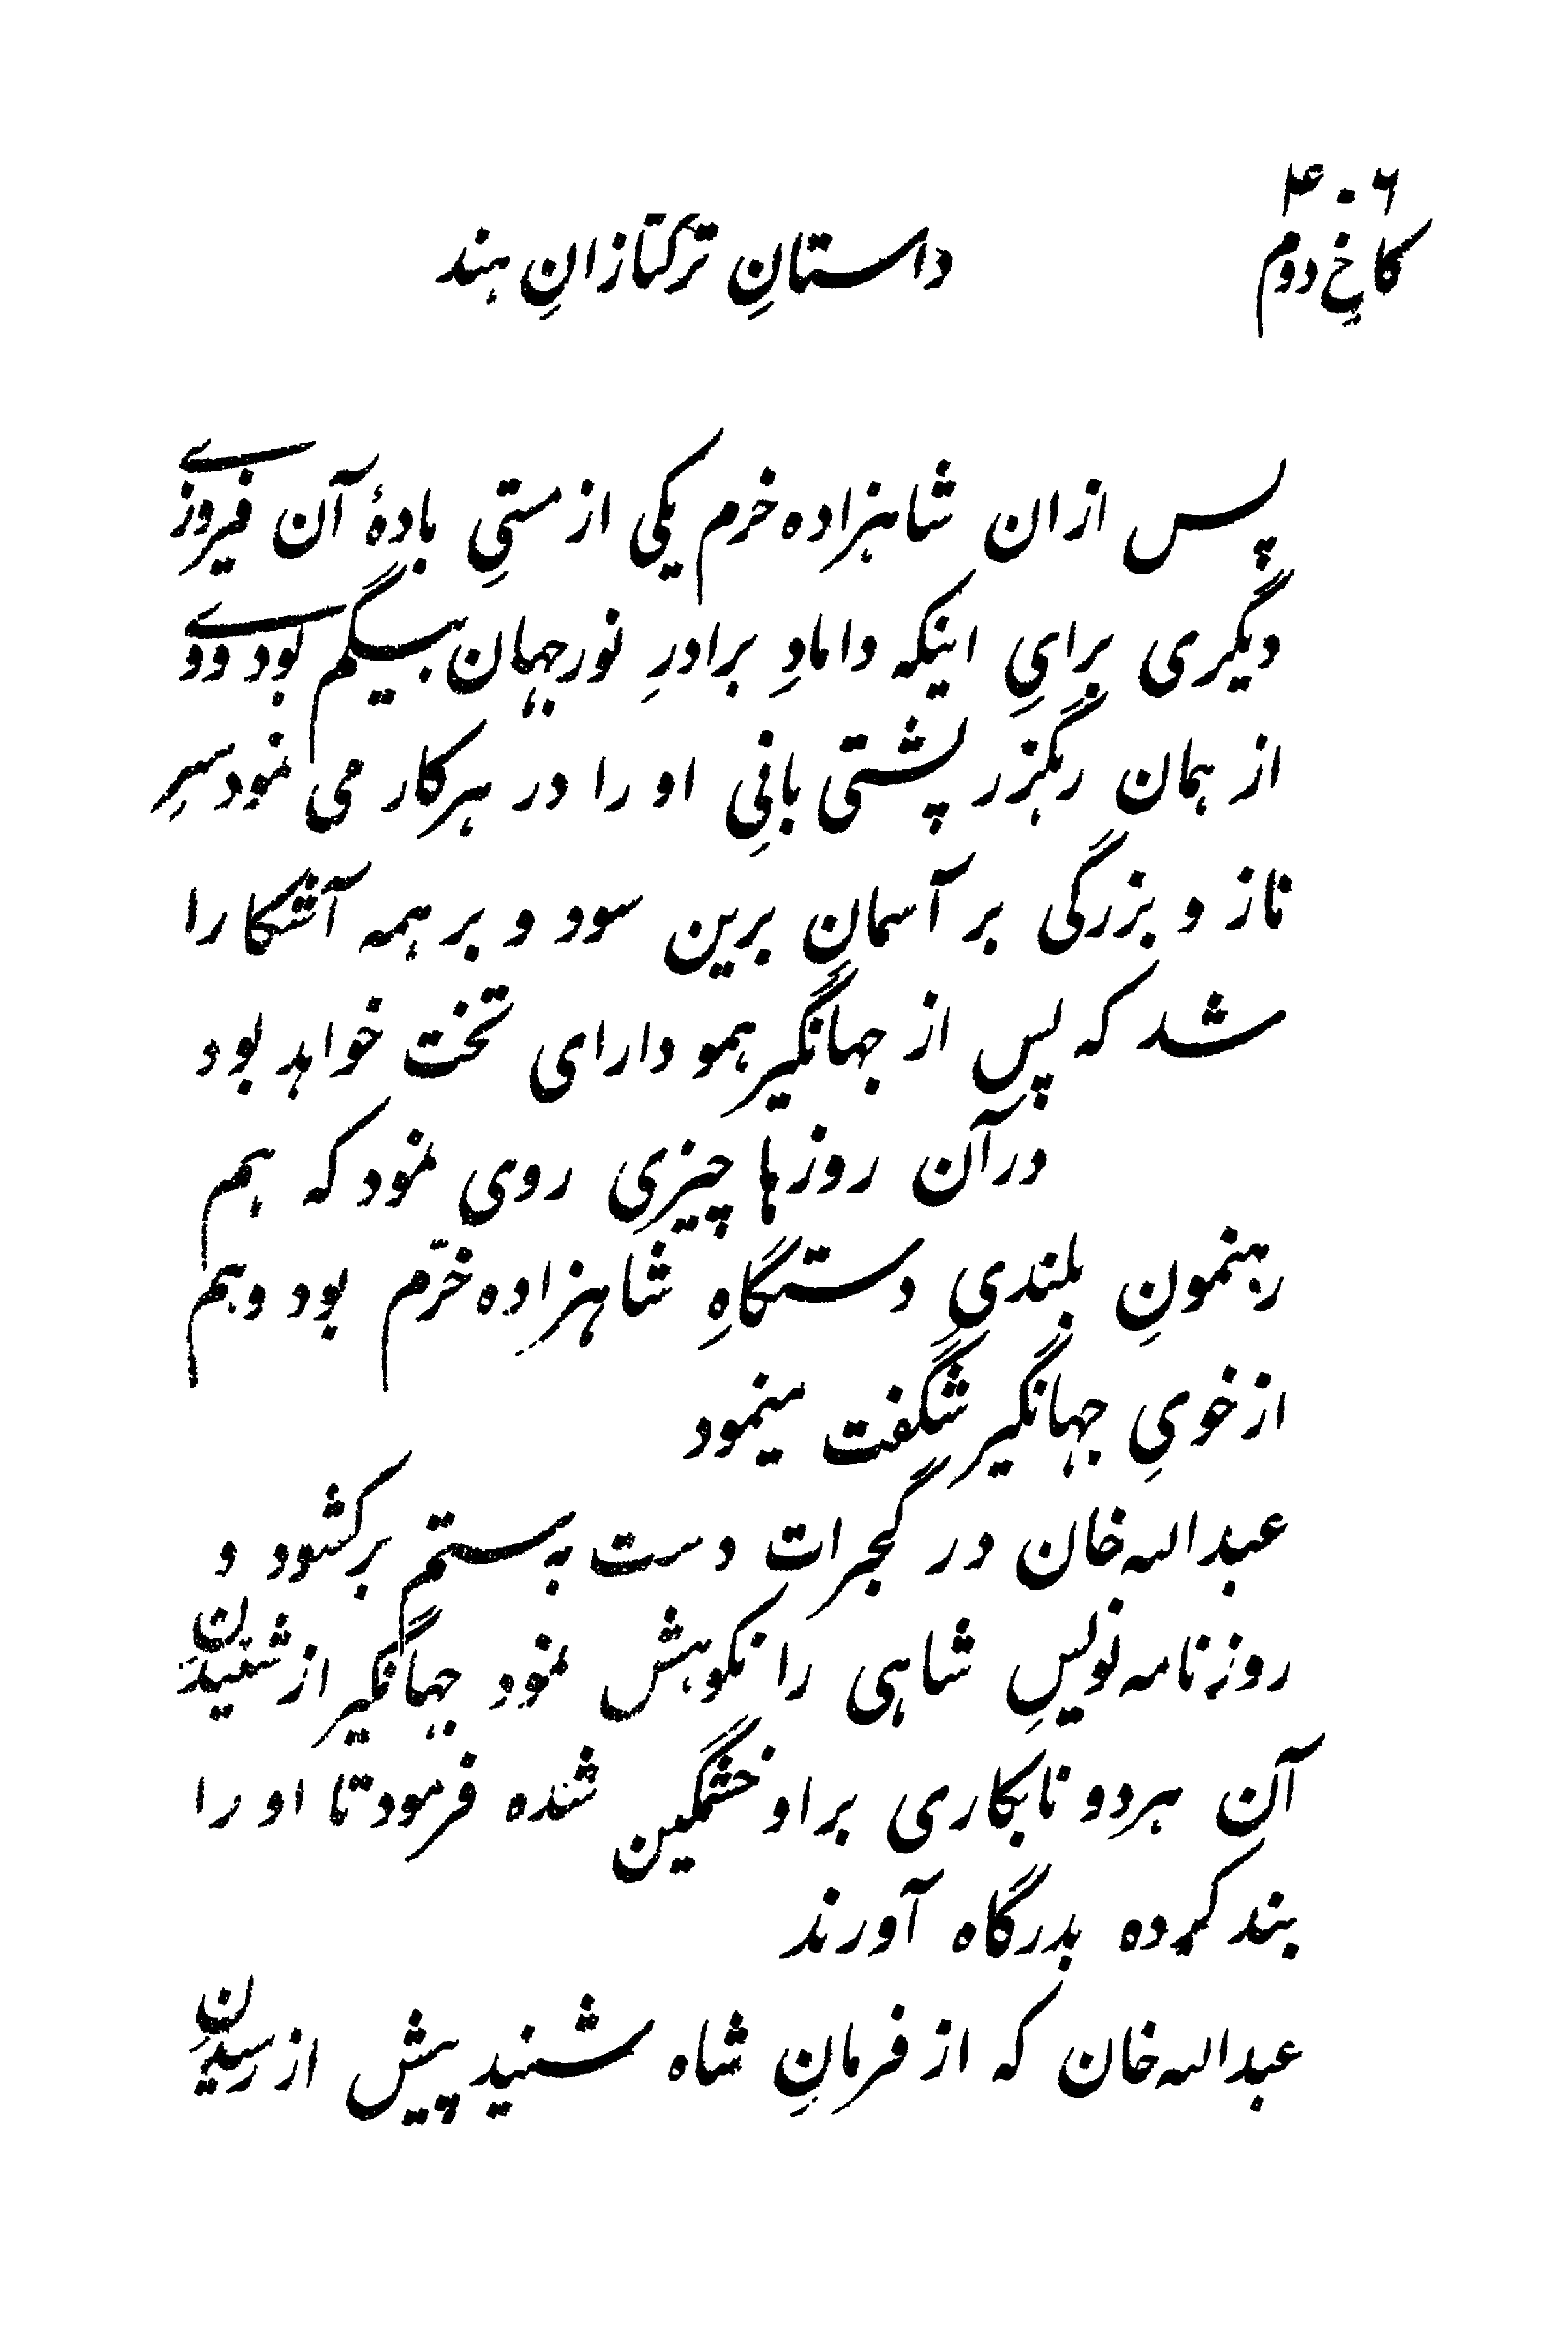 ۴۰۶
کاخِ دوم
داستانِ ترکتازانِ هند
پس ازان شاهزاده خرم یکی از مستیِ بادهٔ آن فیروزی
دیگری برایِ اینکه دامادِ برادرِ نورجهان بیگم بود و وی
از همان رهگزر پشتی بانیِ او را در هرکار می نمود سرِ
ناز و بزرگی بر آسمانِ برین سود و بر همه آشکارا
شد که پس از جهانگیر همو دارای تخت خواهد بود
درآن روزها چیزی روی نمود که هم
رهنمونِ بلندیِ دستگاهِ شاهزاده خرّم بود و هم
از خویِ جهانگیر شگفت مینمود
عبدالله خان در گجرات دست به ستم برکشود و
روزنامه نویسِ شاهی را نکوهش نمود جهانگیر از شنیدنِ
آن هردو نابکاری بر او خشمگین شده فرمود تا او را
بند کرده بدرگاه آورند
عبدالله خان که از فرمانِ شاه شنید پیش از رسیدنِ